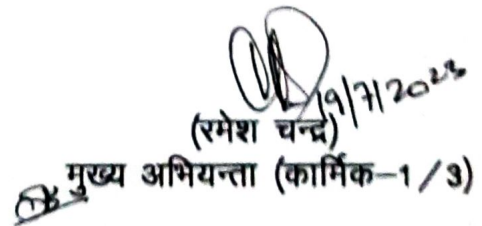 19/7/2023
(रमेश चन्द्र)
मुख्य अभियन्ता (कार्मिक-1/3)